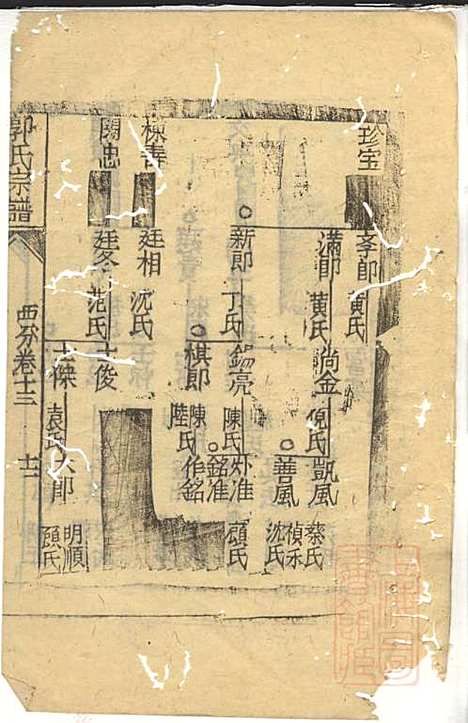 珍宝
孝郎 黄氏
满郎 黄氏 尚金 倪氏 凯風 蔡氏 禎禾
善風 沈氏
新郎 丁氏 鎰亮 陳氏 外准 顔氏
銘准
棋郎 陳氏 陸氏 作銘
棟壽 廷相 沈氏
閏忠 廷冬 范氏 士俊
士傑 袁氏 大郎 明順 顔氏
郭氏宗譜
西分卷十三
十一